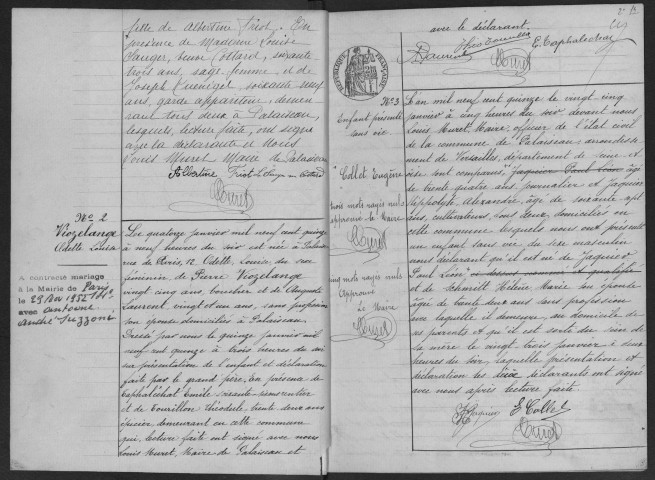 fille de Albertine Friot. En
présence de Madame Louise
Sauger, veuve Collard, soixante
trois ans, sage-femme, et de
Joseph Quenigel, soixante neuf
ans, garde appariteur, demeu
rant tous deux à Palaiseau,
lesquels, lecture faite, ont signé
avec la déclarante et Nous
Louis Muret Maire de Palaiseau
Albertine Friot
Muret
No 2
Viozelange
Odette Louise
A contracté mariage
à la Mairie de Paris
le 29 1952
avec Antoine
André Suzzoni
Le quatorze janvier mil neuf cent quinze
à neuf heures du soir est née à Palaiseau
rue de Paris, 12, Odette, Louise, du sexe
féminin de Pierre Viozelange
vingt cinq ans, boucher et de
Laurent, vingt et un ans, sans profession
son épouse domiciliés à Palaiseau.
Dressé par nous le quinze janvier mil
neuf cent quinze à trois heures du soir
sur présentation de l'enfant et déclaration
faite par le grand père, en présence de
Caphaléchat Emile, soixante ans, rentier
et de Tourillon Théodule, trente deux ans
épicier demeurant en cette commune
qui, lecture faite ont signé avec nous
Louis Muret, Maire de Palaiseau et
avec le déclarant.
Laurent
Muret
RÉPUBLIQUE FRANÇAISE
No 3
Enfant présenté
sans vie
Collet Eugène
trois mots rayés nuls
approuvé le Maire
Muret
cinq mots rayés nuls
Approuvé
Le Maire
Muret
L'an mil neuf cent quinze le vingt-cinq
janvier à cinq heures du soir devant nous
Louis Muret, Maire, officier de l'état civil
de la commune de Palaiseau, arrondisse
ment de Versailles, département de Seine et
Oise sont comparus, Jaquier Paul Léon âgé
de trente quatre ans journalier et Jaquier
Hippolyte Alexandre, âgé de soixante sept
ans, cultivateur, tous deux domiciliés en
cette commune lesquels nous ont présenté
un enfant sans vie du sexe masculin
nous déclarant qu'il est né de Jaquier
Paul Léon
et de Schmitt Hélène Marie son épouse
âgée de trente deux ans sans profession
avec laquelle il demeure, au domicile de
ses parents et qu'il est sorti du sein de
sa mère le vingt trois janvier à deux
heures du soir, laquelle présentation et
déclaration les deux déclarants ont signé
avec nous après lecture faite.
E Collet
Muret